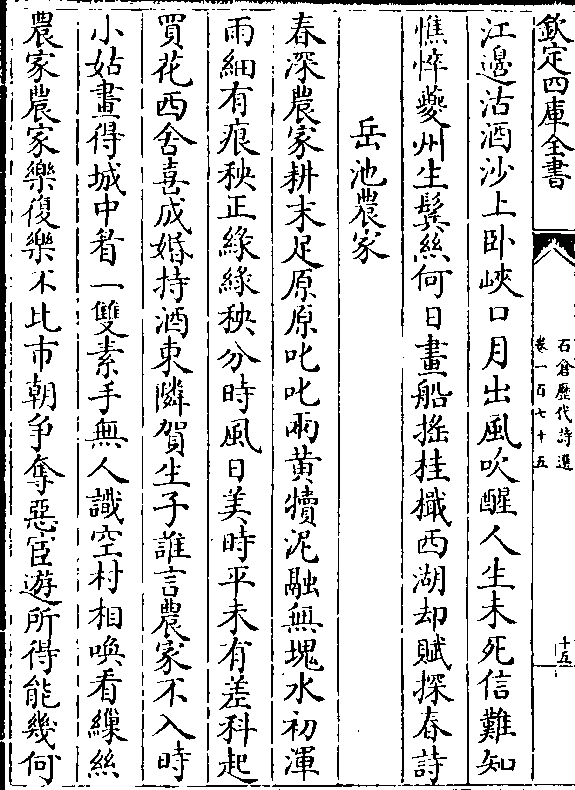 欽定四庫全書
石倉歷代詩選
卷一百七十五
十五
江邊沽酒沙上卧峽口月出風吹醒人生未死信難知
憔悴夔州生鬢絲何日畫船搖桂檝西湖却賦探春詩
岳池農家
春深農家耕未足原原叱叱兩黃犢泥融無塊水初渾
雨細有痕秧正緑緑秧分時風日美時平未有差科起
買花西舍喜成婚持酒東隣賀生子誰言農家不入時
小姑畫得城中眉一雙素手無人識空村相喚看繅絲
農家農家樂復樂不比市朝爭奪惡宦遊所得能幾何